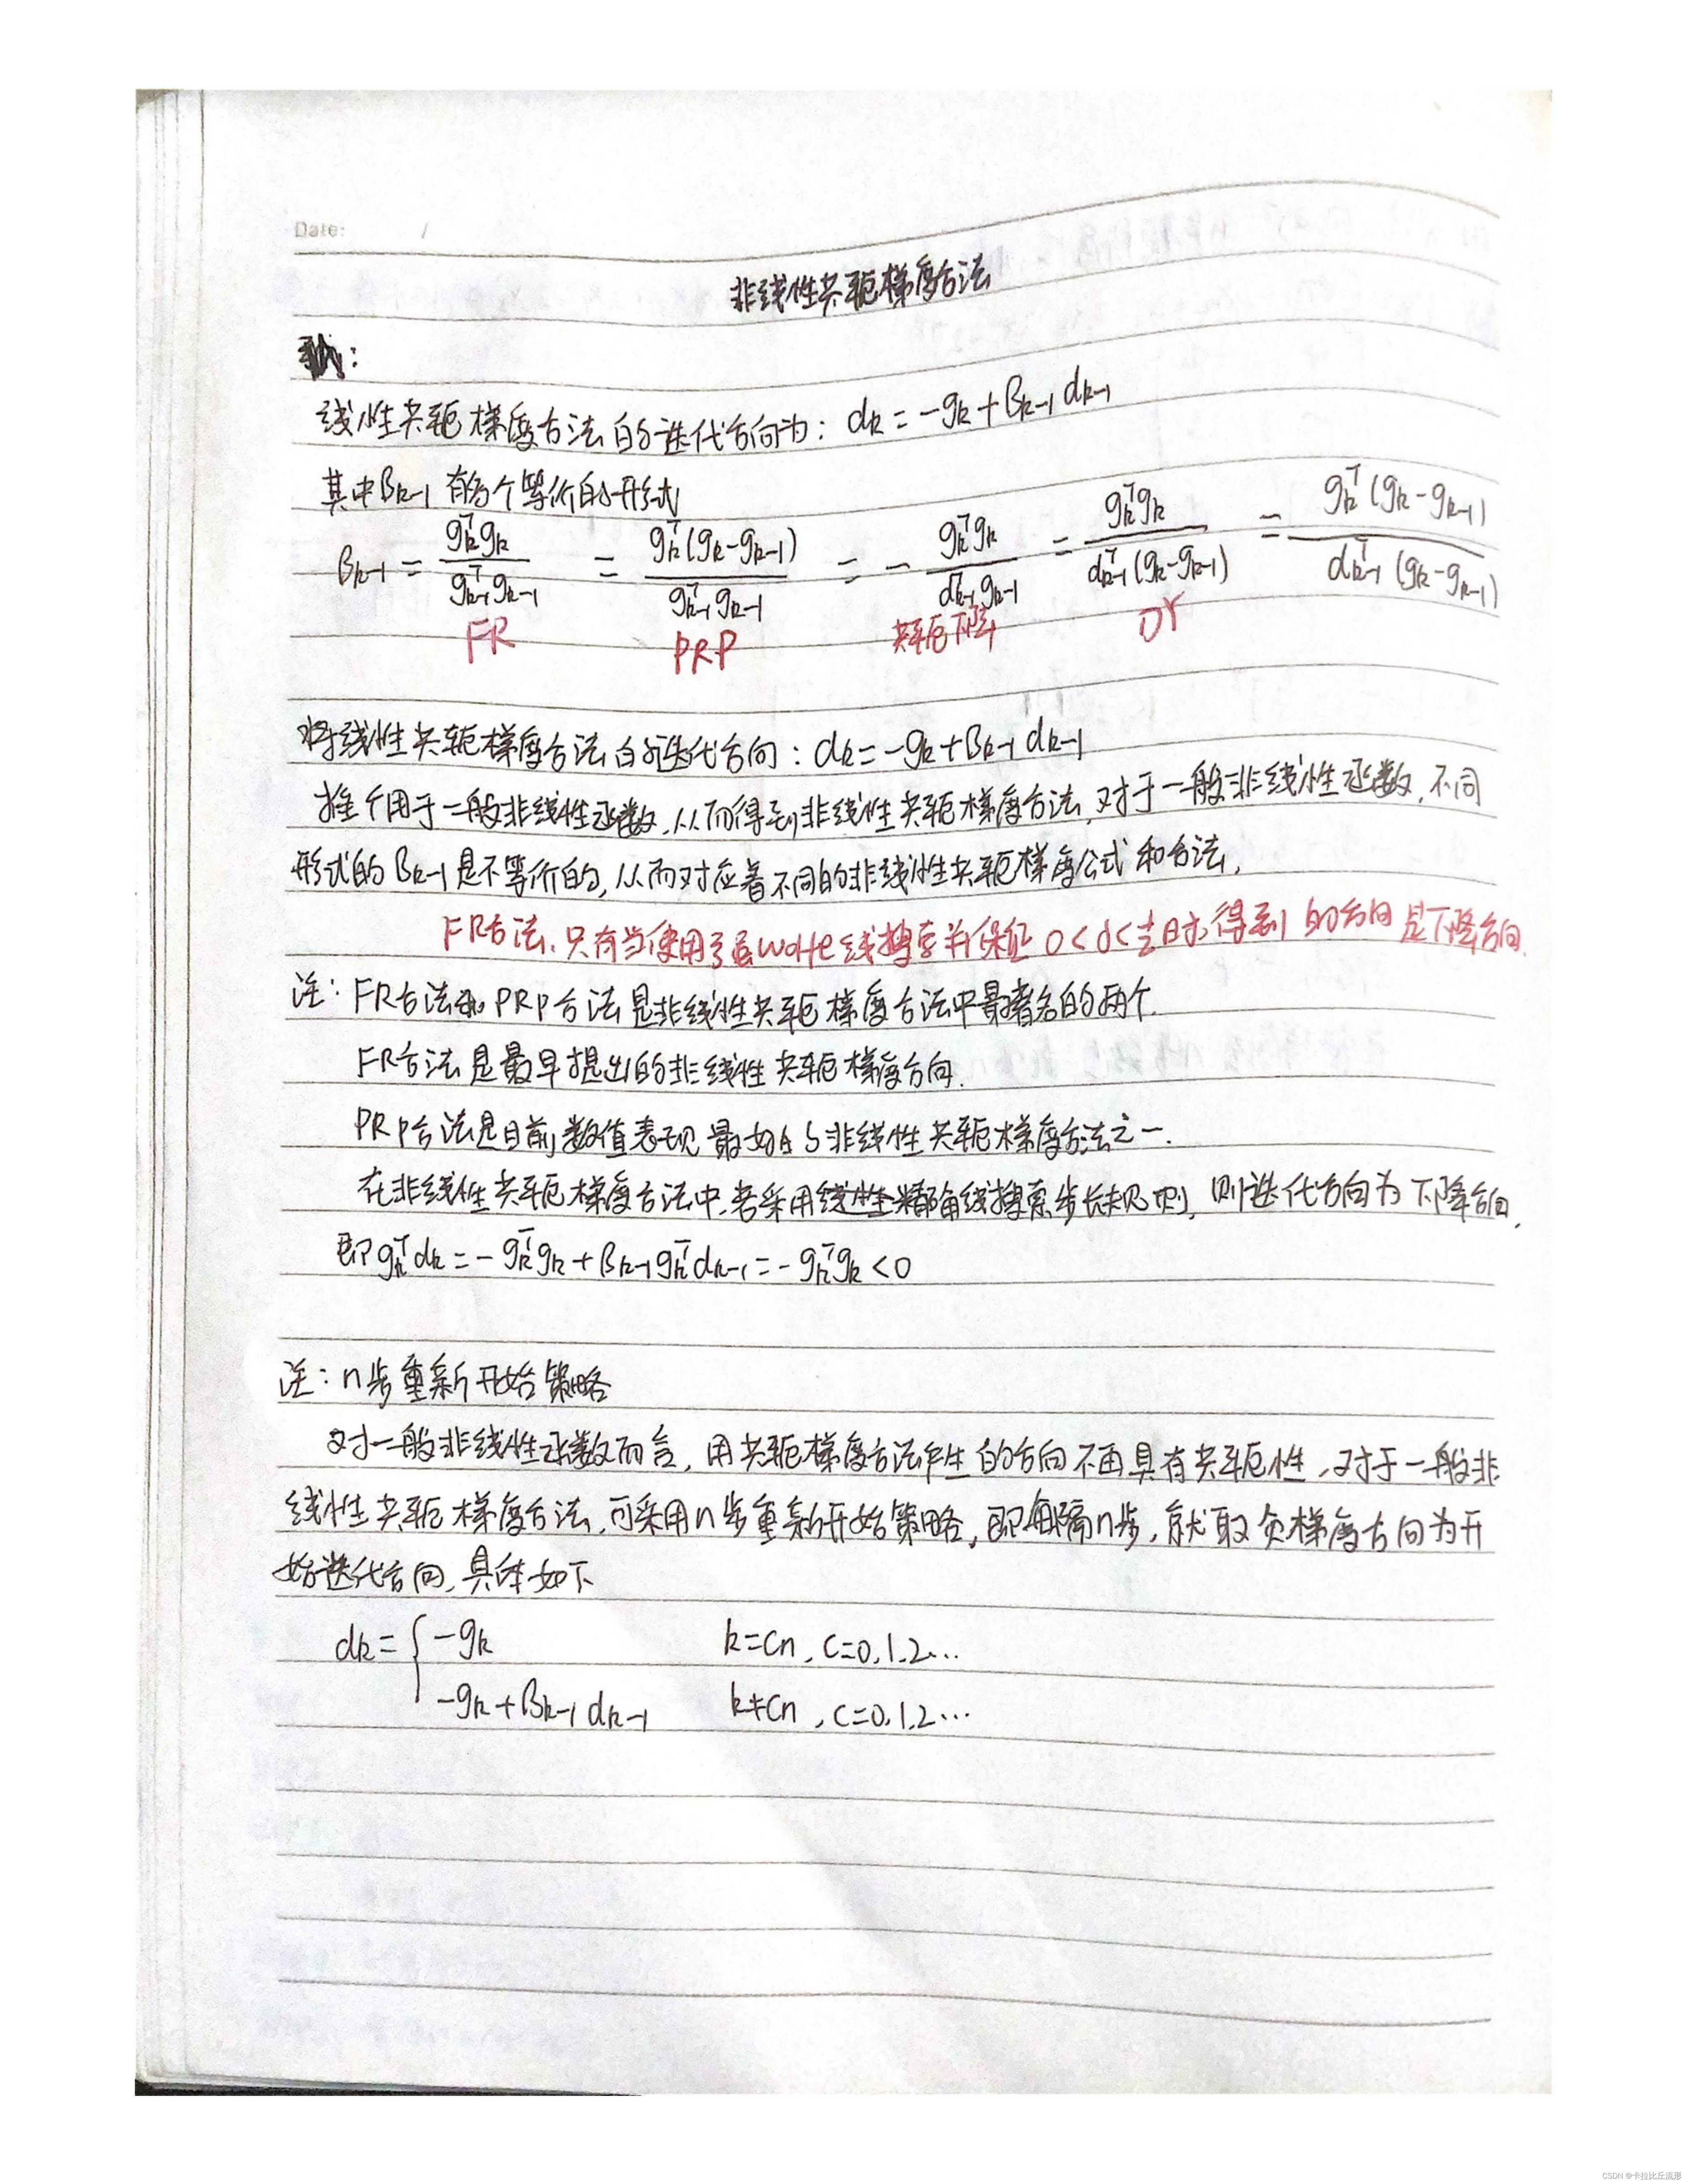 Date: /
非线性共轭梯度方法
线性共轭梯度方法的迭代方向为: dₖ = -gₖ + βₖ₋₁ dₖ₋₁
其中βₖ₋₁ 有多个等价的形式
βₖ₋₁ = gₖᵀgₖ / gₖ₋₁ᵀgₖ₋₁ = gₖᵀ(gₖ-gₖ₋₁) / gₖ₋₁ᵀgₖ₋₁ = - gₖᵀgₖ / dₖ₋₁ᵀgₖ₋₁ = gₖᵀgₖ / dₖ₋₁ᵀ(gₖ-gₖ₋₁) = gₖᵀ(gₖ-gₖ₋₁) / dₖ₋₁ᵀ(gₖ-gₖ₋₁)
FR PRP 共轭下降 DY
将线性共轭梯度方法的迭代方向: dₖ = -gₖ + βₖ₋₁ dₖ₋₁
推广用于一般非线性函数,从而得到非线性共轭梯度方法,对于一般非线性函数,不同
形式的βₖ₋₁是不等价的,从而对应着不同的非线性共轭梯度公式和方法,
FR方法,只有当使用了强wolfe线搜索并保证 0<σ<½时,得到的方向是下降方向.
注: FR方法和PRP方法是非线性共轭梯度方法中最著名的两个.
FR方法是最早提出的非线性共轭梯度方向.
PRP方法是目前数值表现最好的非线性共轭梯度方法之一.
在非线性共轭梯度方法中,若采用线性精确线搜索步长规则,则迭代方向为下降方向,
即gₖᵀdₖ = -gₖᵀgₖ + βₖ₋₁gₖᵀdₖ₋₁ = -gₖᵀgₖ < 0
注: n步重新开始策略
对一般非线性函数而言,用共轭梯度方法产生的方向不再具有共轭性,对于一般非
线性共轭梯度方法,可采用n步重新开始策略,即每隔n步,就取负梯度方向为开
始迭代方向,具体如下
dₖ = { -gₖ k=cn, c=0,1,2...
-gₖ + βₖ₋₁ dₖ₋₁ k≠cn, c=0,1,2...
CSDN @卡拉比丘流形